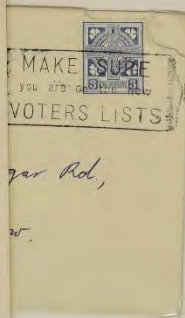 MAKE SURE
you are on the new
VOTERS LISTS
3
gar Rd.,
w.